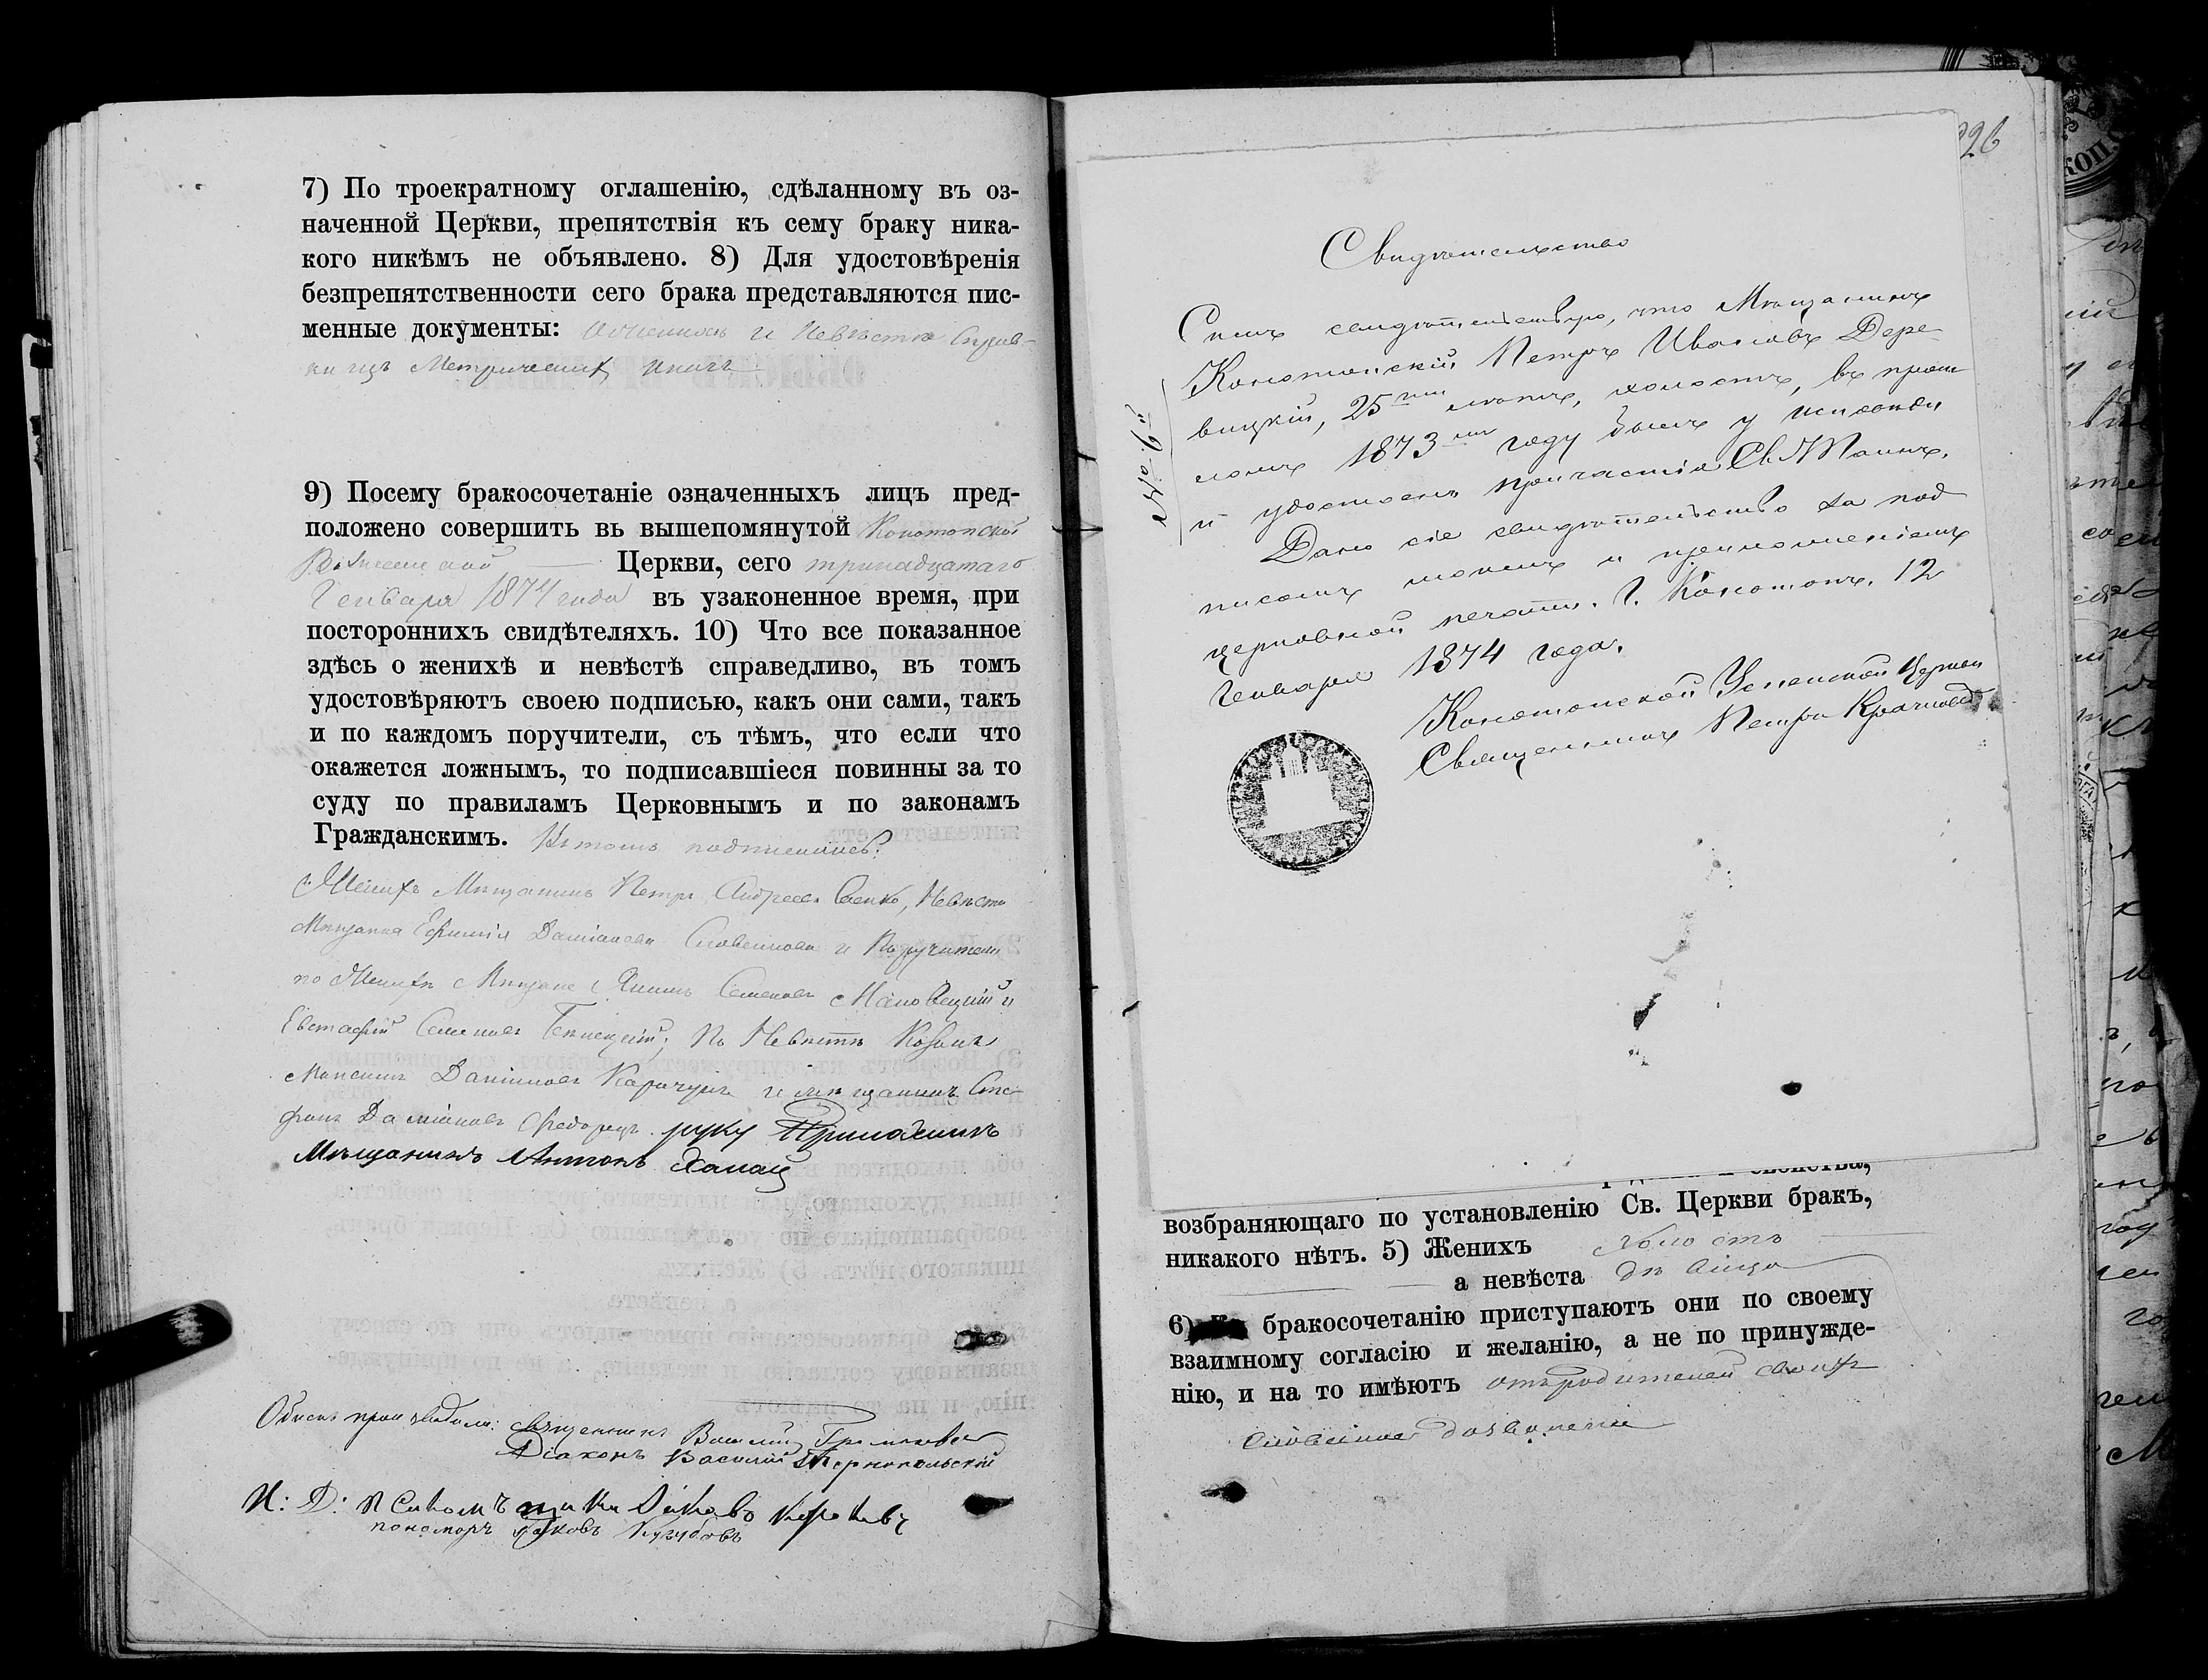 7) По троекратному оглашенію, сдѣланному въ оз-
наченной Церкви, препятствія къ сему браку ника-
кого никѣмъ не объявлено. 8) Для удостовѣренія
безпрепятственности сего брака представляются пис-
менные документы: и Невѣстѣ Справ-
ки изъ Метрическихъ книгъ
9) Посему бракосочетаніе означенныхъ лицъ пред-
положено совершить вь вышепомянутой Конотопской
Церкви, сего тринадцатаго
Генваря 1874 года въ узаконенное время, при
постороннихъ свидѣтеляхъ. 10) Что все показанное
здѣсь о женихѣ и невѣстѣ справедливо, въ томъ
удостовѣряютъ своею подписью, какъ они сами, такъ
и по каждомъ поручители, съ тѣмъ, что если что
окажется ложнымъ, то подписавшіеся повинны за то
суду по правиламъ Церковнымъ и по законамъ
Гражданскимъ. Къ тому подписались:
Женихъ Мѣщанинъ Петръ Андреевъ Невѣста
Мѣщанка Ефимія Даміанова и Поручители
по Женихѣ Мѣщане Якимъ Семеновъ и
Евстафій Семеновъ По Невѣстѣ Козакъ
Максимъ Даніиловъ Карачунъ и мѣщанинъ Сте-
фанъ Даміановъ Федорецъ. руку Приложилъ
Мѣщанинъ Антонъ Халай
Обыскъ производили: Священникъ Василій
Діаконъ Василій Тернопольскій
И: Д: Псаломъщика
пономарь Яковъ
26
Свидѣтельство
№ 9.й
Симъ свидѣтельствую, что Мѣщанинъ
Конотопскій Петръ Ивановъ Дере-
вицкій, 25ти лѣтъ, холостъ, въ прош-
ломъ 1873мъ году былъ у исповѣди
и удостоенъ причастія Св. Таинъ.
Дано сіе свидѣтельство за под
писомъ моимъ и приложеніемъ
церковной печати. Г. Конотопъ. 12
Генваря 1874 года.
Конотопской Успенской Церкви
Священникъ Петръ
свойства,
возбраняющаго по установленію Св. Церкви бракъ,
никакого нѣтъ. 5) Женихъ холостъ
а невѣста дѣвица
6) Къ бракосочетанію приступаютъ они по своему
взаимному согласію и желанію, а не по принужде-
нію, и на то имѣютъ отъ родителей своихъ
словесное дозволеніе
КОП.